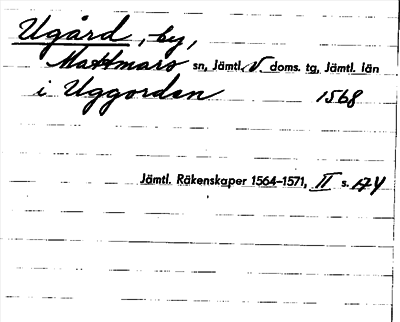 Ugård, by,
Mattmars sn, Jämtl. V doms. tg, Jämtl. län
i Uggorden 1568
Jämtl. Räkenskaper 1564–1571, II s. 174